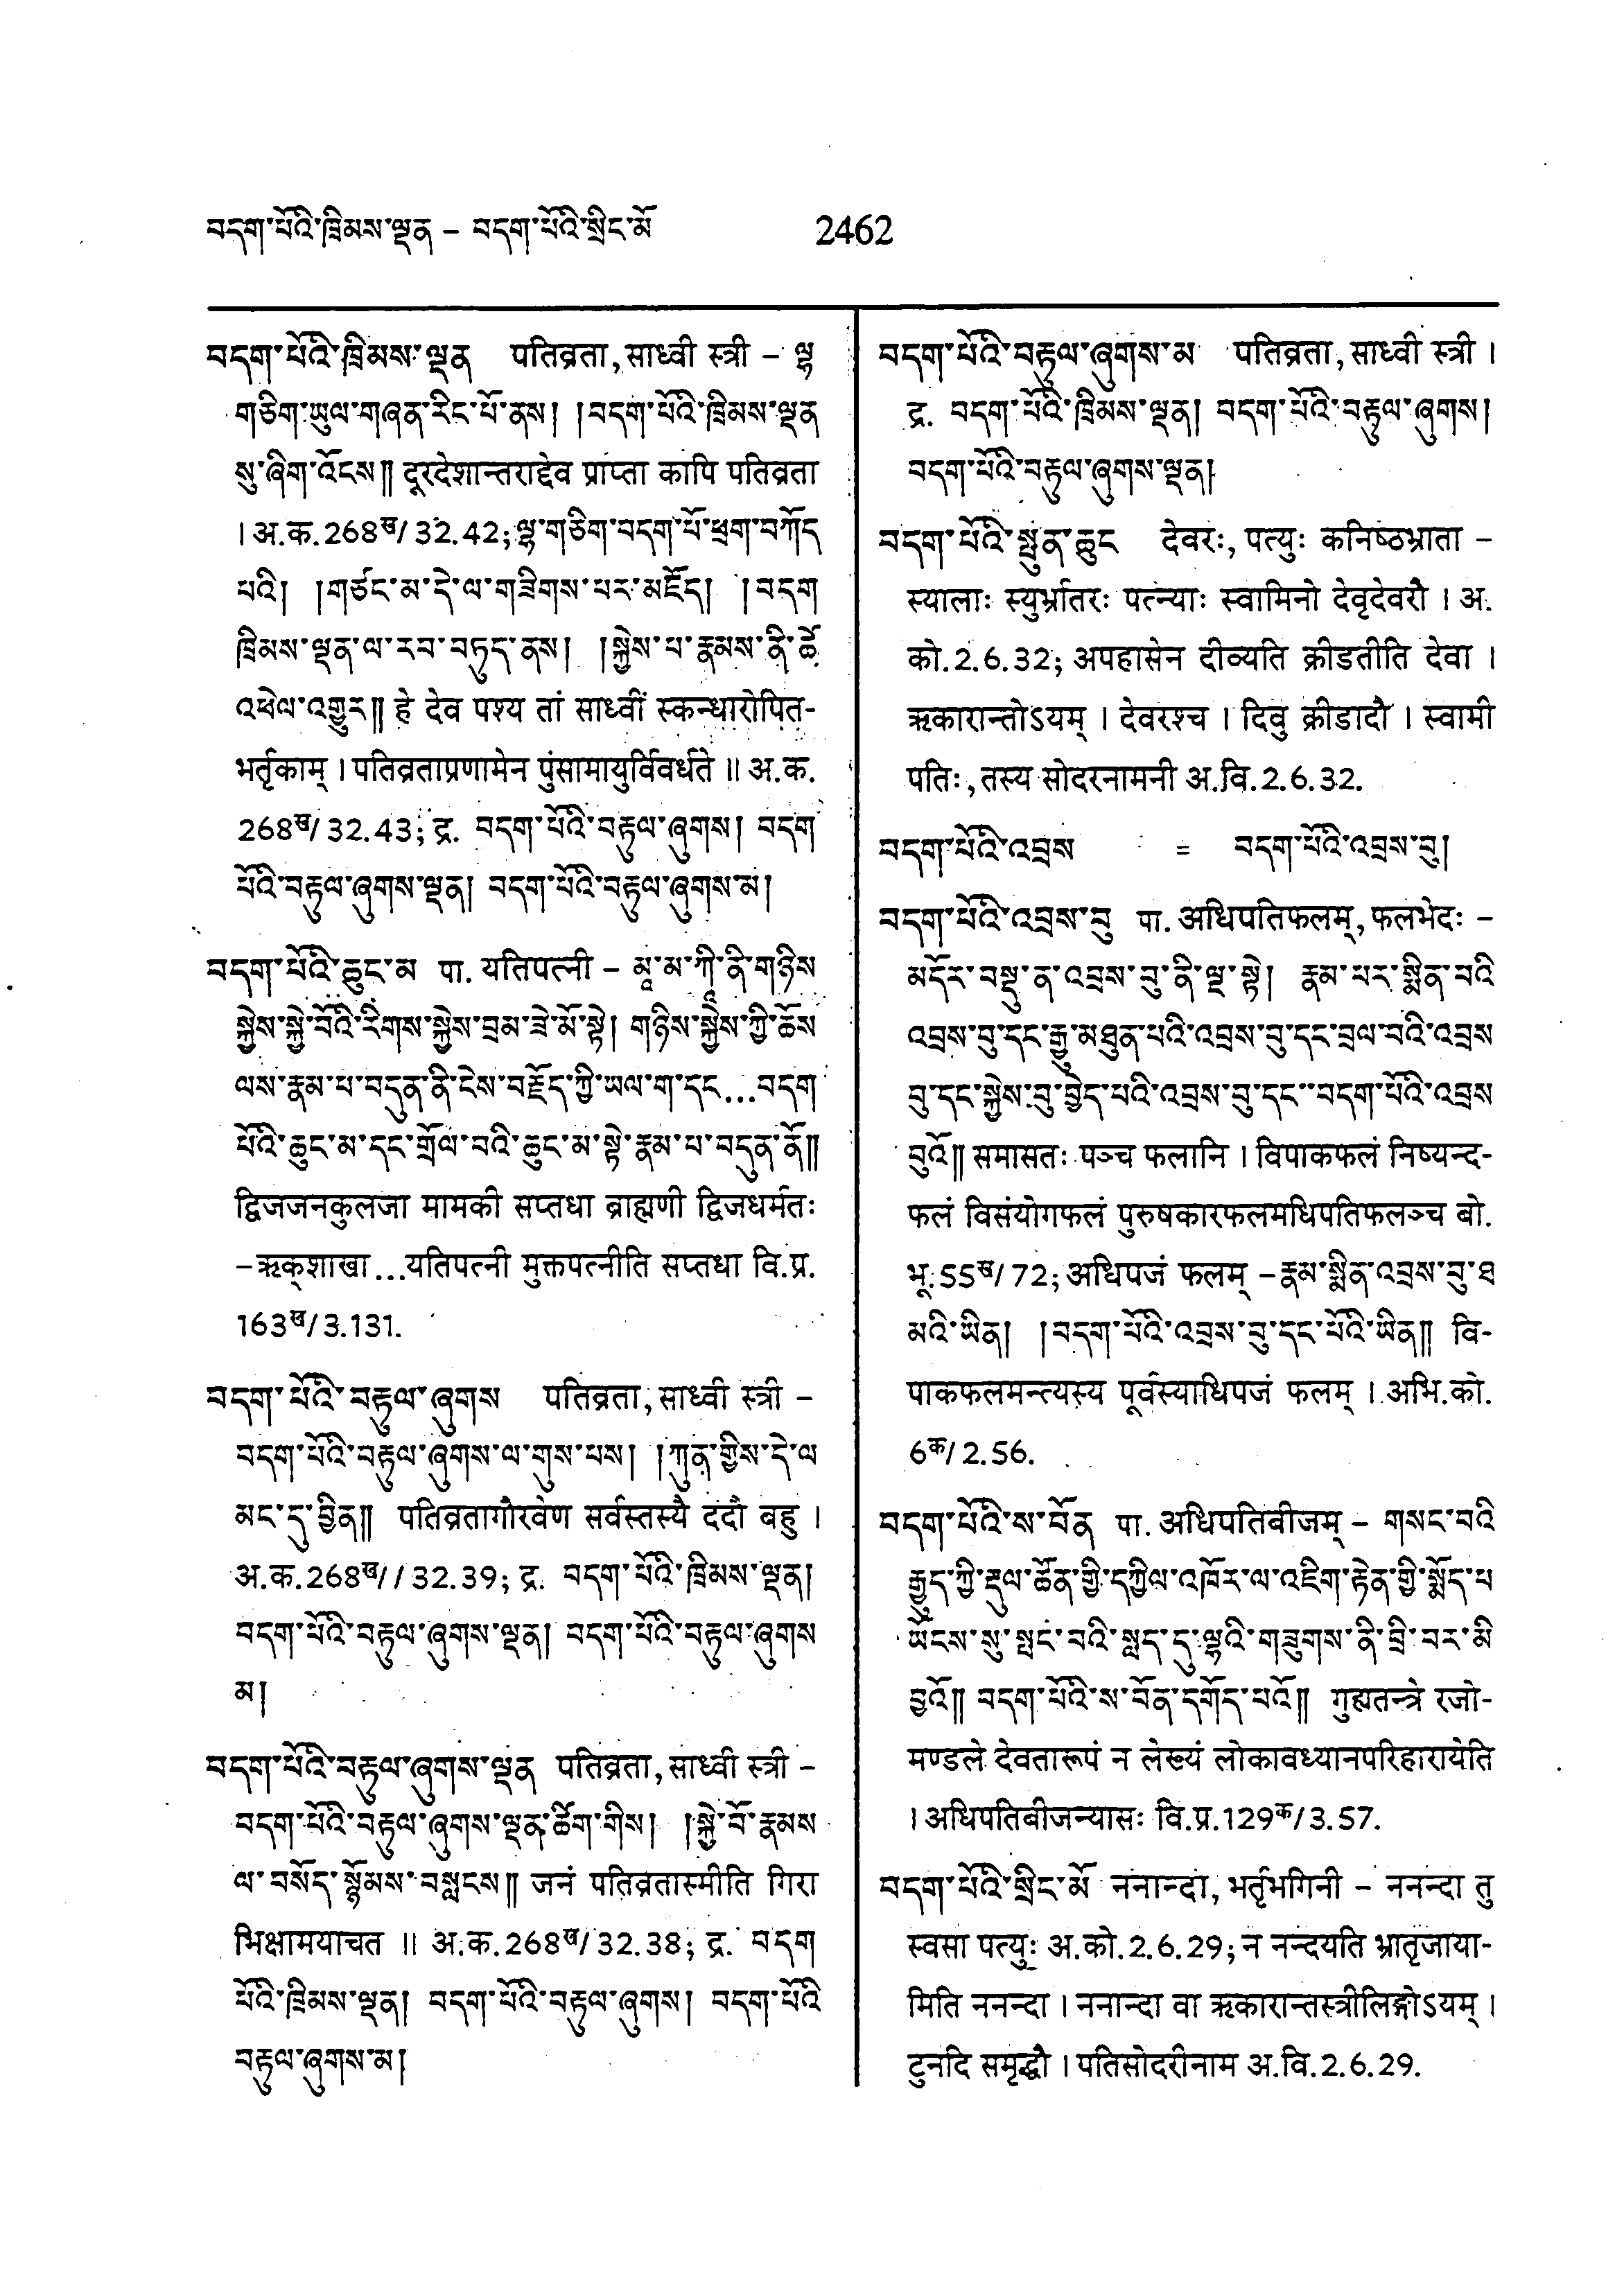 བདག་པོའི་ཁྲིམས་ལྡན – བདག་པོའི་སྲིང་མོ
2462
བདག་པོའི་ཁྲིམས་ལྡན पतिव्रता, साध्वी स्त्री – ལྷ
གཅིག་ཡུལ་གཞན་རིང་པོ་ནས། །བདག་པོའི་ཁྲིམས་ལྡན
སུ་ཞིག་འོངས༎ दूरदेशान्तराद्देव प्राप्ता कापि पतिव्रता
। अ.क.268ख/32.42; ལྷ་གཅིག་བདག་པོ་ཕྲག་བཀོད
པའི། །གཙང་མ་དེ་ལ་གཟིགས་པར་མཛོད། །བདག
ཁྲིམས་ལྡན་ལ་རབ་བཏུད་ནས། །སྐྱེས་པ་རྣམས་ནི་ཚེ
འཕེལ་འགྱུར༎ हे देव पश्य तां साध्वीं स्कन्धारोपित-
भर्तृकाम् । पतिव्रताप्रणामेन पुंसामायुर्विवर्धते ॥ अ.क.
268ख/32.43; द्र. བདག་པོའི་བརྟུལ་ཞུགས། བདག
པོའི་བརྟུལ་ཞུགས་ལྡན། བདག་པོའི་བརྟུལ་ཞུགས་མ།
བདག་པོའི་ཆུང་མ पा. यतिपत्नी – མཱ་མ་ཀཱི་ནི་གཉིས
སྐྱེས་སྐྱེ་བོའི་རིགས་སྐྱེས་བྲམ་ཟེ་མོ་སྟེ། གཉིས་སྐྱེས་ཀྱི་ཆོས
ལས་རྣམ་པ་བདུན་ནི་ངེས་བརྗོད་ཀྱི་ཡལ་ག་དང...བདག
པོའི་ཆུང་མ་དང་གྲོལ་བའི་ཆུང་མ་སྟེ་རྣམ་པ་བདུན་ནོ༎
द्विजजनकुलजा मामकी सप्तधा ब्राह्मणी द्विजधर्मतः
– ऋक्शाखा...यतिपत्नी मुक्तपत्नीति सप्तधा वि.प्र.
163ख/3.131.
བདག་པོའི་བརྟུལ་ཞུགས पतिव्रता, साध्वी स्त्री –
བདག་པོའི་བརྟུལ་ཞུགས་ལ་གུས་པས། །ཀུན་གྱིས་དེ་ལ
མང་དུ་བྱིན༎ पतिव्रतागौरवेण सर्वस्तस्यै ददौ बहु ।
अ.क.268ख//32.39; द्र. བདག་པོའི་ཁྲིམས་ལྡན།
བདག་པོའི་བརྟུལ་ཞུགས་ལྡན། བདག་པོའི་བརྟུལ་ཞུགས
མ།
བདག་པོའི་བརྟུལ་ཞུགས་ལྡན पतिव्रता, साध्वी स्त्री –
བདག་པོའི་བརྟུལ་ཞུགས་ལྡན་ཚིག་གིས། །སྐྱེ་བོ་རྣམས
ལ་བསོད་སྙོམས་བསླངས༎ जनं पतिव्रतास्मीति गिरा
भिक्षामयाचत ॥ अ.क.268ख/32.38; द्र. བདག
པོའི་ཁྲིམས་ལྡན། བདག་པོའི་བརྟུལ་ཞུགས། བདག་པོའི
བརྟུལ་ཞུགས་མ།
བདག་པོའི་བརྟུལ་ཞུགས་མ पतिव्रता, साध्वी स्त्री ।
द्र. བདག་པོའི་ཁྲིམས་ལྡན། བདག་པོའི་བརྟུལ་ཞུགས།
བདག་པོའི་བརྟུལ་ཞུགས་ལྡན།
བདག་པོའི་སྤུན་ཆུང देवरः, पत्युः कनिष्ठभ्राता –
स्यालाः स्युर्भ्रातरः पत्न्याः स्वामिनो देवृदेवरौ । अ.
को.2.6.32; अपहासेन दीव्यति क्रीडतीति देवा ।
ऋकारान्तोऽयम् । देवरश्च । दिवु क्रीडादौ । स्वामी
पतिः, तस्य सोदरनामनी अ.वि.2.6.32.
བདག་པོའི་འབྲས = བདག་པོའི་འབྲས་བུ།
བདག་པོའི་འབྲས་བུ पा. अधिपतिफलम्, फलभेदः –
མདོར་བསྡུ་ན་འབྲས་བུ་ནི་ལྔ་སྟེ། རྣམ་པར་སྨིན་པའི
འབྲས་བུ་དང་རྒྱུ་མཐུན་པའི་འབྲས་བུ་དང་བྲལ་བའི་འབྲས
བུ་དང་སྐྱེས་བུ་བྱེད་པའི་འབྲས་བུ་དང་བདག་པོའི་འབྲས
བུའོ༎ समासतः पञ्च फलानि । विपाकफलं निष्यन्द-
फलं विसंयोगफलं पुरुषकारफलमधिपतिफलञ्च बो.
भू.55ख/72; अधिपजं फलम् – རྣམ་སྨིན་འབྲས་བུ་ཐ
མའི་ཡིན། །བདག་པོའི་འབྲས་བུ་དང་པོའི་ཡིན༎ वि-
पाकफलमन्त्यस्य पूर्वस्याधिपजं फलम् । अभि.को.
6क/2.56.
བདག་པོའི་ས་བོན पा. अधिपतिबीजम् – གསང་བའི
རྒྱུད་ཀྱི་རྡུལ་ཚོན་གྱི་དཀྱིལ་འཁོར་ལ་འཇིག་རྟེན་གྱི་སྨོད་པ
ཡོངས་སུ་སྤང་བའི་སླད་དུ་ལྷའི་གཟུགས་ནི་བྲི་བར་མི
བྱའོ༎ བདག་པོའི་ས་བོན་དགོད་པའོ༎ गुह्यतन्त्रे रजो-
मण्डले देवतारूपं न लेख्यं लोकावध्यानपरिहारायेति
। अधिपतिबीजन्यासः वि.प्र.129क/3.57.
བདག་པོའི་སྲིང་མོ ननान्दा, भर्तृभगिनी – ननन्दा तु
स्वसा पत्युः अ.को.2.6.29; न नन्दयति भ्रातृजाया-
मिति ननन्दा । ननान्दा वा ऋकारान्तस्त्रीलिङ्गोऽयम् ।
टुनदि समृद्धौ । पतिसोदरीनाम अ.वि.2.6.29.